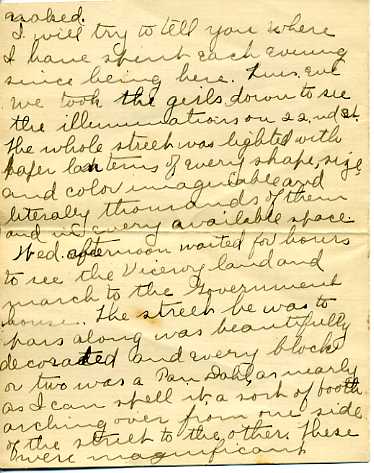 naked.
I will try to tell you where
I have spent each evening
since being here. Tues. eve
we took the girls down to see
the illuminations on 22nd St.
The whole street was lighted with
paper lanterns of every shape, size
and color imaginable and
literaly thousands of them
and in every available space
Wed. afternoon waited for hours
to see the Viceroy land and
march to the Government
house. The street he was to
pass along was beautifully
decorated and every block
or two was a Pan Dahl, as nearly
as I can spell it, a sort of booth
arching over from one side
of the street to the other. These
were magnificant